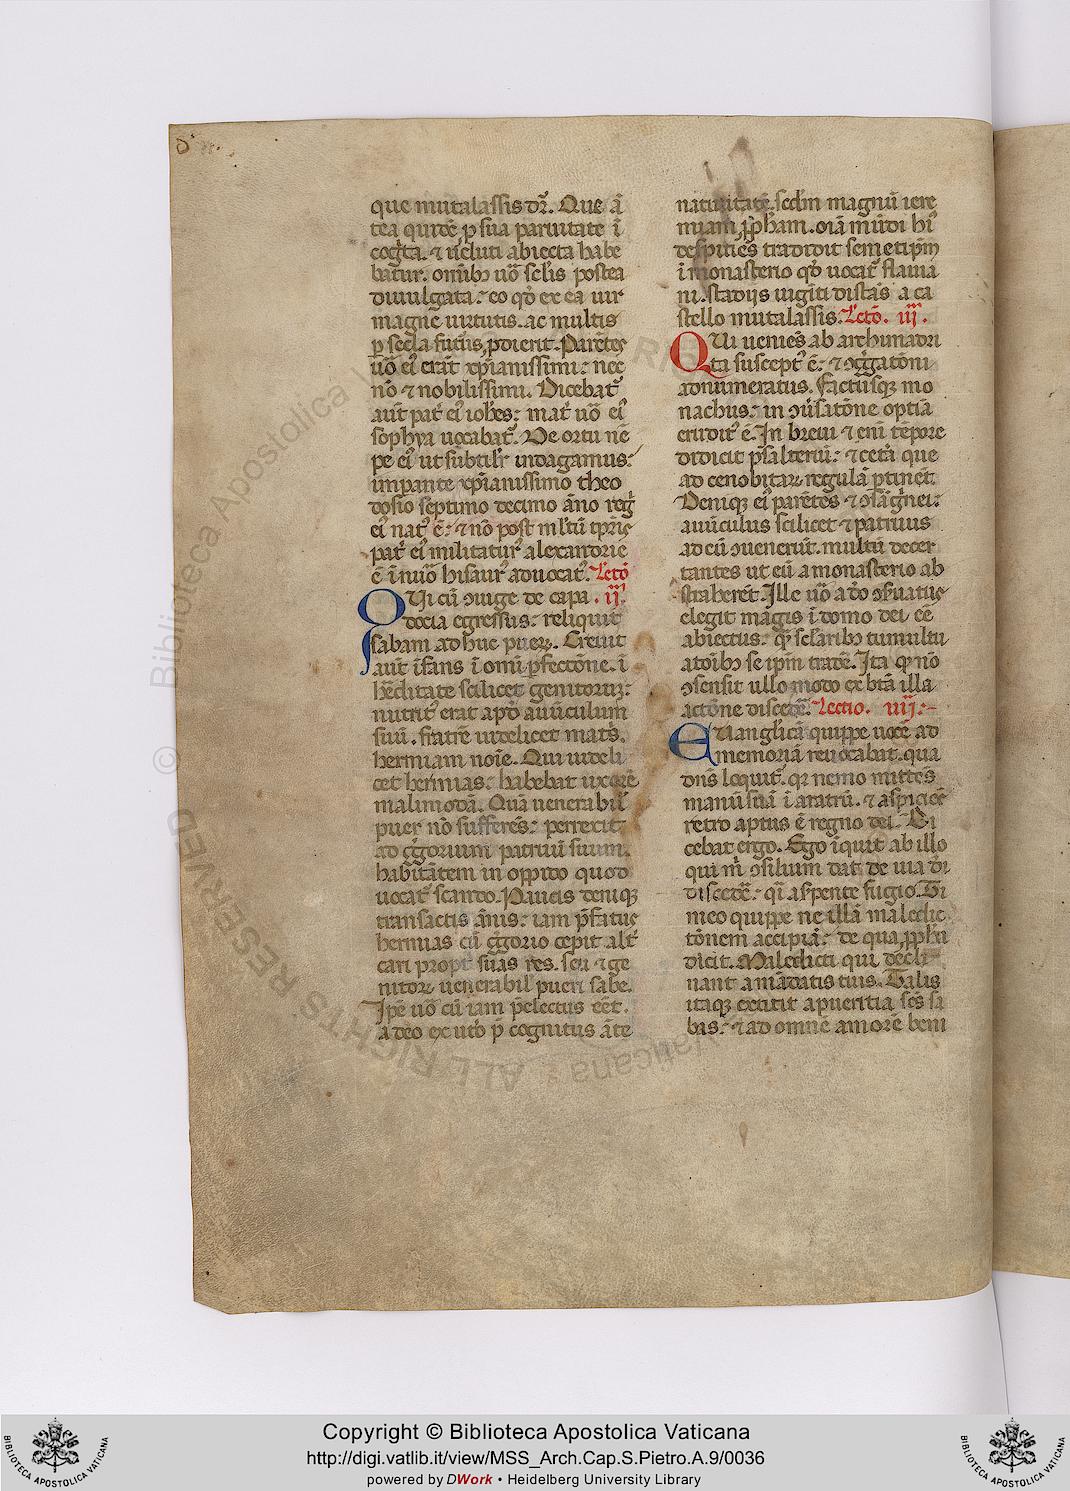 que mutalassis dr̄. Que ā
tea quidē ꝑ sua paruitate ī
cogĩta. ⁊ ueluti abiecta habe
batur. omībꝰ uō sclis postea
diuulgata. eo qđ ex ea uir
magne uirtutis. ac multis
ꝑ secla futurus, ꝓdierit. Parētes
uō eī erāt xp̄ianissimi: nec
nō ⁊ nobilissimi. Dicebat̄
aūt pat̄ eī ioh̄es: mat̄ uō eī
sophya uocabat̄. De ortu nē
pe eī ut subtilī indagamus:
imꝑante xp̄ianissimo theo
dosio septimo decimo āno regī
eī nat̄ ē: ⁊ nō post ml̄tū tp̄ris
pat̄ eī militatur̄ alexandrie
ē ī nūo hisaur̄ aduocat̄. Lectō
QUi cū ↄiuge de capa . ii.
docia egressus: reliquit
sabam adhuc pueꝝ. Creuit
aūt īfans ī omī ꝑfectōne. ī
h̄editate scilicet genitoꝝ:
nutrit̄ erat apđ auūculum
suū. fratrē uidelicet matris.
hermiam noīe. Qui uideli
cet hermias: habebat uxorē
malimodā. Quā uenerabil̄
puer nō sufferēs: perrexit
ad ḡgorium patruū suum.
habitātem in oppido quod
uocat̄ scando. Paucis deniqꝫ
transactis ānis: iam p̄fatus
hermias cū ḡgorio cepit alt̄
cari propt̄ suas res. seu ⁊ ge
nitoꝝ uenerabil̄ pueri sabe.
Ip̄e uō cū iam p̄electus eēt.
a deo ex ut̄o p̄ cognitus āte
natiuitatē. scđm magnū iere
miam ꝓph̄am. oīa mūdi hī
despiciēs tradidit semetip̄m
ī monasterio qđ uocat̄ flauia
ni. stadijs uigīti distās a ca
stello mutalassis. Lectō. iii.
QUi ueniēs ab archimādri
ta suscept̄ ē: ⁊ ↄḡgatōni
adnumeratus. Factusqꝫ mo
nachus: in ↄūsatōne optīa
erudit̄ ē. In breui ⁊ enī tēpore
didicit psalteriū: ⁊ cetā que
ad cenobitaꝝ regulā ꝑtinēt.
Deniqꝫ eī parētes ⁊ ↄsāḡnei:
auūculus scilicet ⁊ patruus
ad eū ↄuenerūt. multū decer
tantes ut eū a monasterio ab
straherēt. Ille uō a đo ↄseruatus
elegit magis ī domo dei eē
abiectus: qꝫ seclaribꝰ tumultu
atoībꝰ se ip̄m tradē. Ita qꝫ nō
ↄsensit ullo modo ex btā illa
actōne discedē. Lectio. iiij.
EUanglicā quippe uocē ad
memoriā reuocabat. qua
dn̄s loquit̄. qꝛ nemo mittēs
manū suā ī aratrū. ⁊ aspiciēs
retro aptus ē regno dei. Di
cebat ergo. Ego īquit ab illo
qui m̄ ↄsilium dat de uia đi
discedē: qī a sꝑente fugio. Ti
meo quippe ne illā maledic
tōnem accipiā: de qua ꝓph̄a
dicit. Maledicti qui decli
nant a mādatis tuis. Talis
itaqꝫ extitit a pueritia sc̄s sa
bas: ⁊ ad omnē amorē beni
Copyright © Biblioteca Apostolica Vaticana
http://digi.vatlib.it/view/MSS_Arch.Cap.S.Pietro.A.9/0036
powered by DWork • Heidelberg University Library